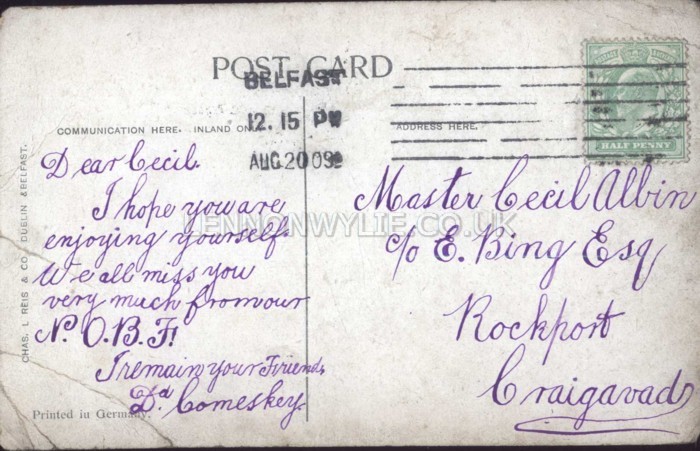 POST CARD
BELFAST
12. 15 PM
AUG 20 09
HALF PENNY
COMMUNICATION HERE. INLAND ON
ADDRESS HERE.
CHAS. L. REIS & CO. DUBLIN & BELFAST.
Dear Cecil.
I hope you are
enjoying yourself.
We all miss you
very much from our
N. O. B. F!
I remain your Friend,
Dd Comeskey.
Master Cecil Albin
c/o E. Bing Esq
Rockport
Craigavad
LENNONWYLIE.CO.UK
Printed in Germany.